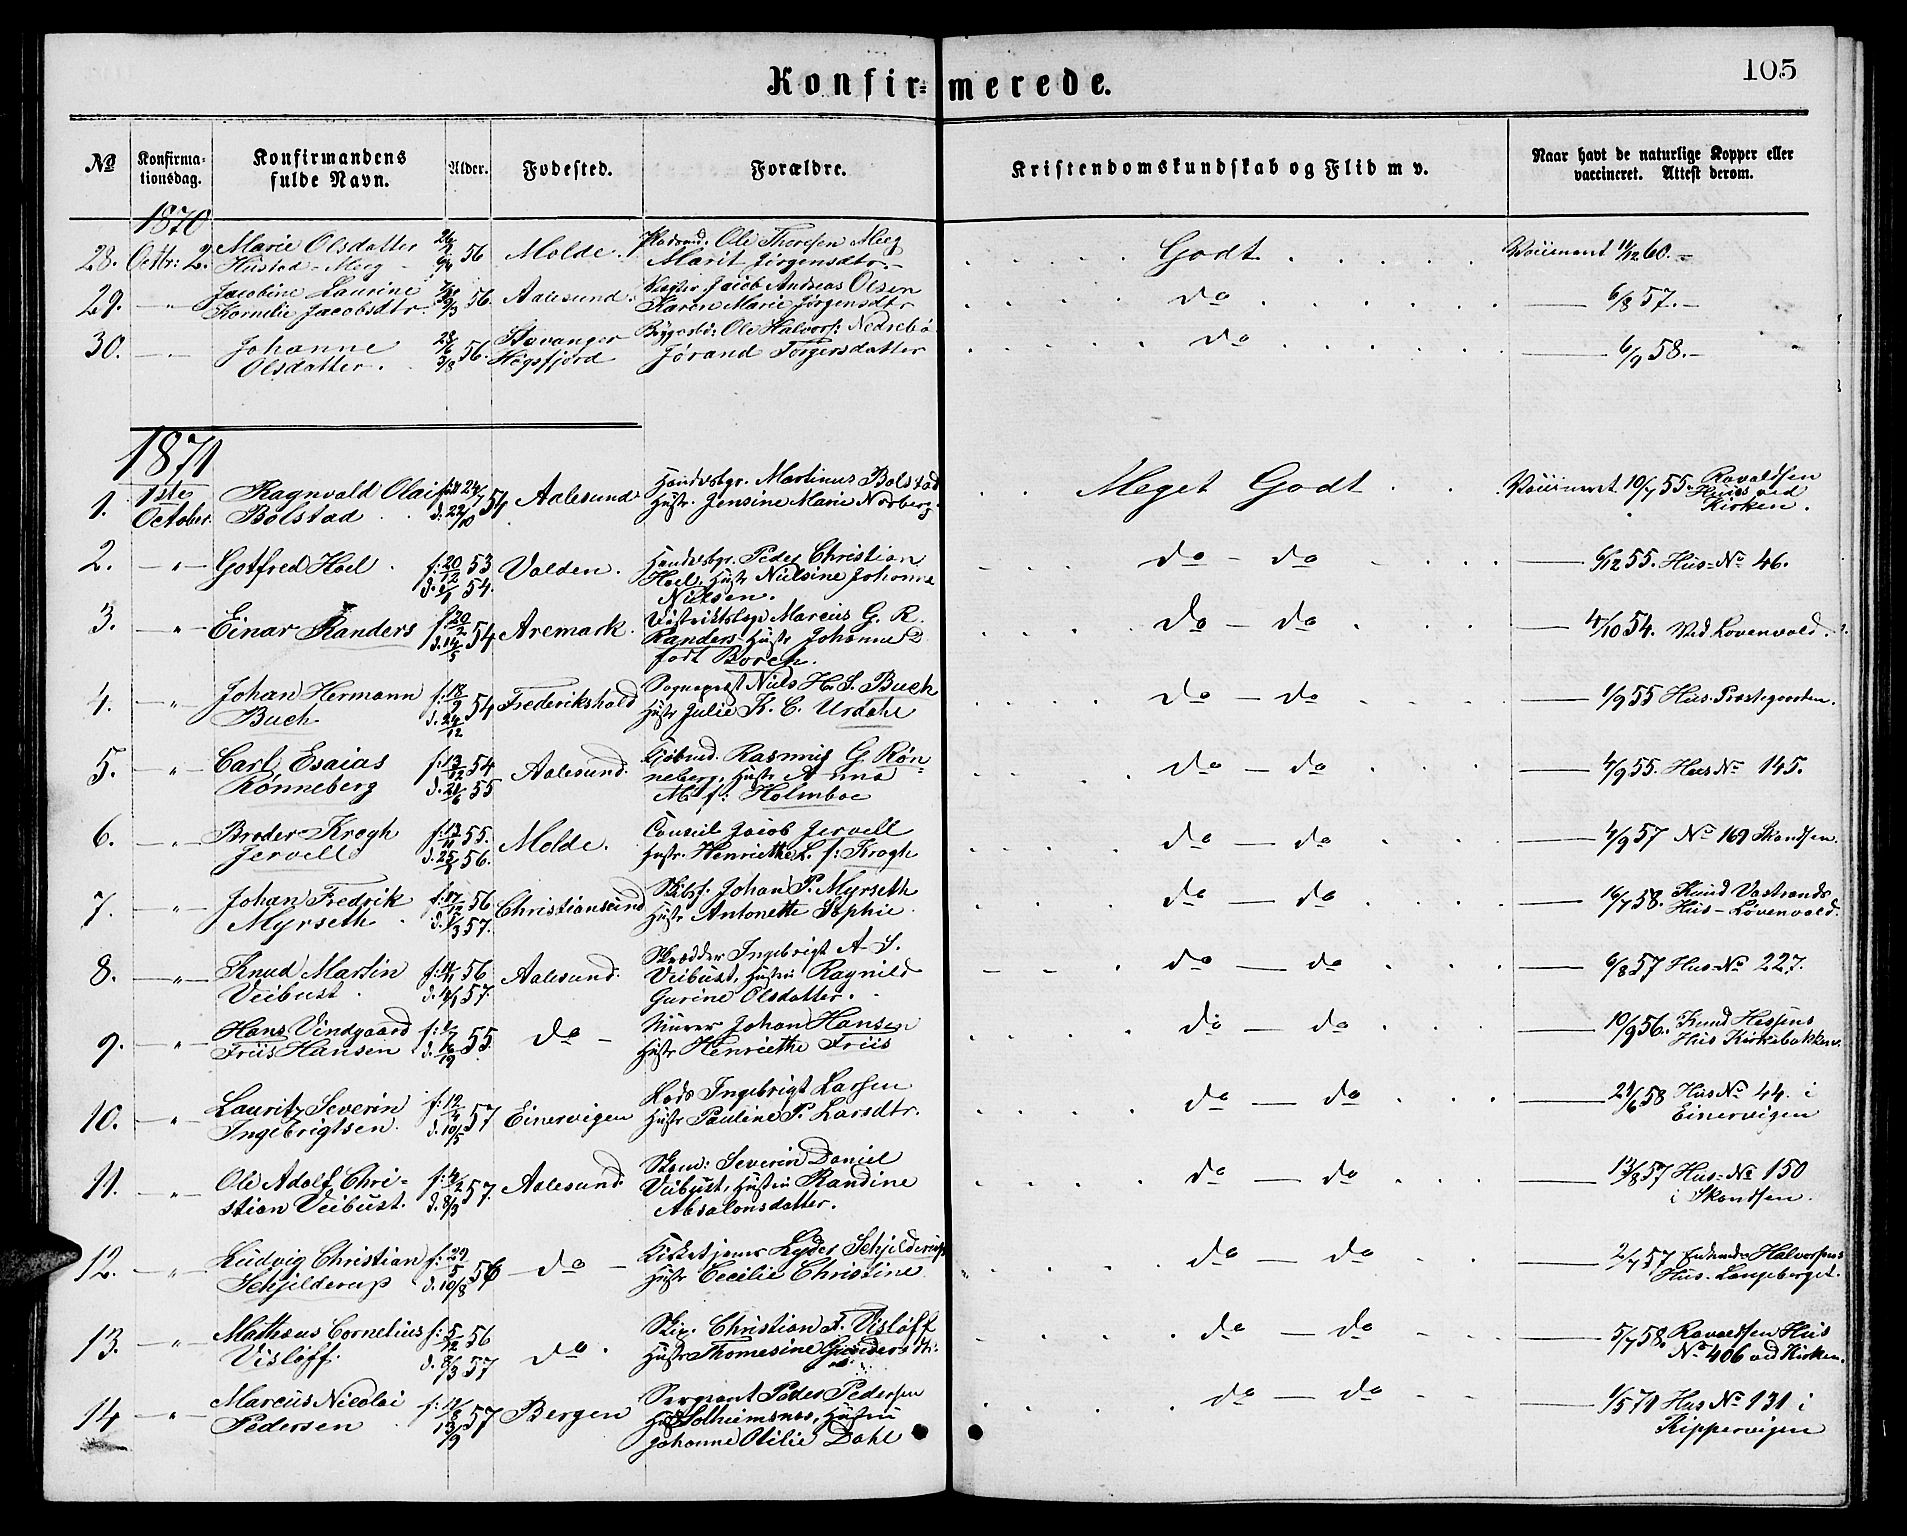 Konfir=merede.
105
No
Konfirma-
tionsdag.
Konfirmandens
fulde Navn.
Alder.
Fødested.
Forældre.
Kristendomskundskab og Flid m v.
Naar havt de naturlige Kopper eller
vaccineret. Attest derom.
1870
28. Octbr: 2. Marie Olsdatter 56 Molde. Ole Thoresen Meeg Godt 11/12 60.-
Hustad-Meeg - Marit Jørgensdtr.-
29. -"- Jacobine Laurine 56. Aalesund. Jacob Andreas Olsen do 6/8 57.-
Kornelie Jacobsdtr. Karen Marie Jørgensdtr
30. -"- Johanne 56. Stavanger Ole Halvors: Nedrebø do 6/9 58.-
Olsdatter. Høgsfjord Jørand Torgersdatter
1871
1. 1ste Ragnvald Olai 54 Aalesund. Martinus Bolstad Meget Godt 10/7 55. Ravaldsen
October. Bolstad d. 22/10 Hustr. Jensine Marie Norberg. Huus ved
Kirken.
2. -"- Gotfred Hoel. f: 20/12 53 Volden. Peder Christian do - do 6/12 55. Hus-No 46.
d. 54. Hoel, Hustr Nielsine Johanne
Nilsen.
3. -"- Einar Randers f. 20/2 54 Aremark. Marcus G. R. do - do 4/10 54. Ved Lovenvold.
d. 14/5 Randers Hustr Johanne
født Borch.
4. -"- Johan Hermann f. 18/9 54 Frederikshald Sogneprest Niels H. S. Buch do - do 1/9 55 Hus. Prestegaarden.
Buch d. 24/12 Hustr Julie K. C. Urdahl
5. -"- Carl Esaias f. 13/12 54 Aalesund. Kjøbmd. Rasmus G. Røn- do - do 4/9 55. Hus No 145.
Rønneberg d. 21/6 55 neberg, Hustr Anna
M. f: Holmboe
6. -"- Broder Krogh f: 13/11 55. Molde. Consul Jacob Jervell do - do 4/9 57 No 169 Skandsen.
Jervell d. 56. Hustr. Henriette L. f: Krogh
7. -"- Johan Fredrik f. 17/12 56 Christiansund Johan P. Myrseth do - do 16/7 58. Knud Vestrands
Myrseth. d. 1/3 57. Hustr Antonette Sophie. Hus - Løvenvold.
8. -"- Knud Martin 56 Aalesund. Skrædder Ingebrigt A. S. do - do 6/8 57 Hus-No 227.
Veibust. 57. Veibust, Hustru Ragnild
Gurine Olsdatter.
9. -"- Hans Vindgaard 55 do - Murer Johan Hansen do - do 10/9 56. Knud Hessens
Friis Hansen Hustr Henriette Friis Hus Kirkebakken.
10. -"- Lauritz Severin f: 12/4 57 Einervigen Lods Ingebrigt Larsen do - do 21/6 58 Hus No 44. i
Ingebrigtsen. d. 10/5 Hustr Pauline P. Larsdtr. Einervigen
11. -"- Ole Adolf Chri- 57. Aalesund. Severin Daniel do - do 13/8 57 Hus-No 150
stian Veibust. d. 8/3 Veibust, Hustru Randine i Skandsen.
Absalonsdatter.
12. -"- Ludvig Christian f: 29/5 56 - do - Kirketjener Lyder Schjelderup do - do 2/7 57 Halvorsens
Schjelderup d. 10/8 Hustr Cecilie Christine Hus. Langeberget.
13. -"- Mathæus Cornelius f: 5/12 56 do. Christian A. Visløff do - do 5/7 58. Ravaldsen Hus
Visløff. d. 8/3 57 Hustr Thomesine Gundersdtr: No 406 ved Kirken.
14 -"- Marcus Nicolai 57 Bergen Sergeant Peder Pedersen do - do 1/5 71 Hus No 131 i
Pedersen 13/9 Solheimsnes, Hustru Kippervigen
Johanne Otilie Dahl